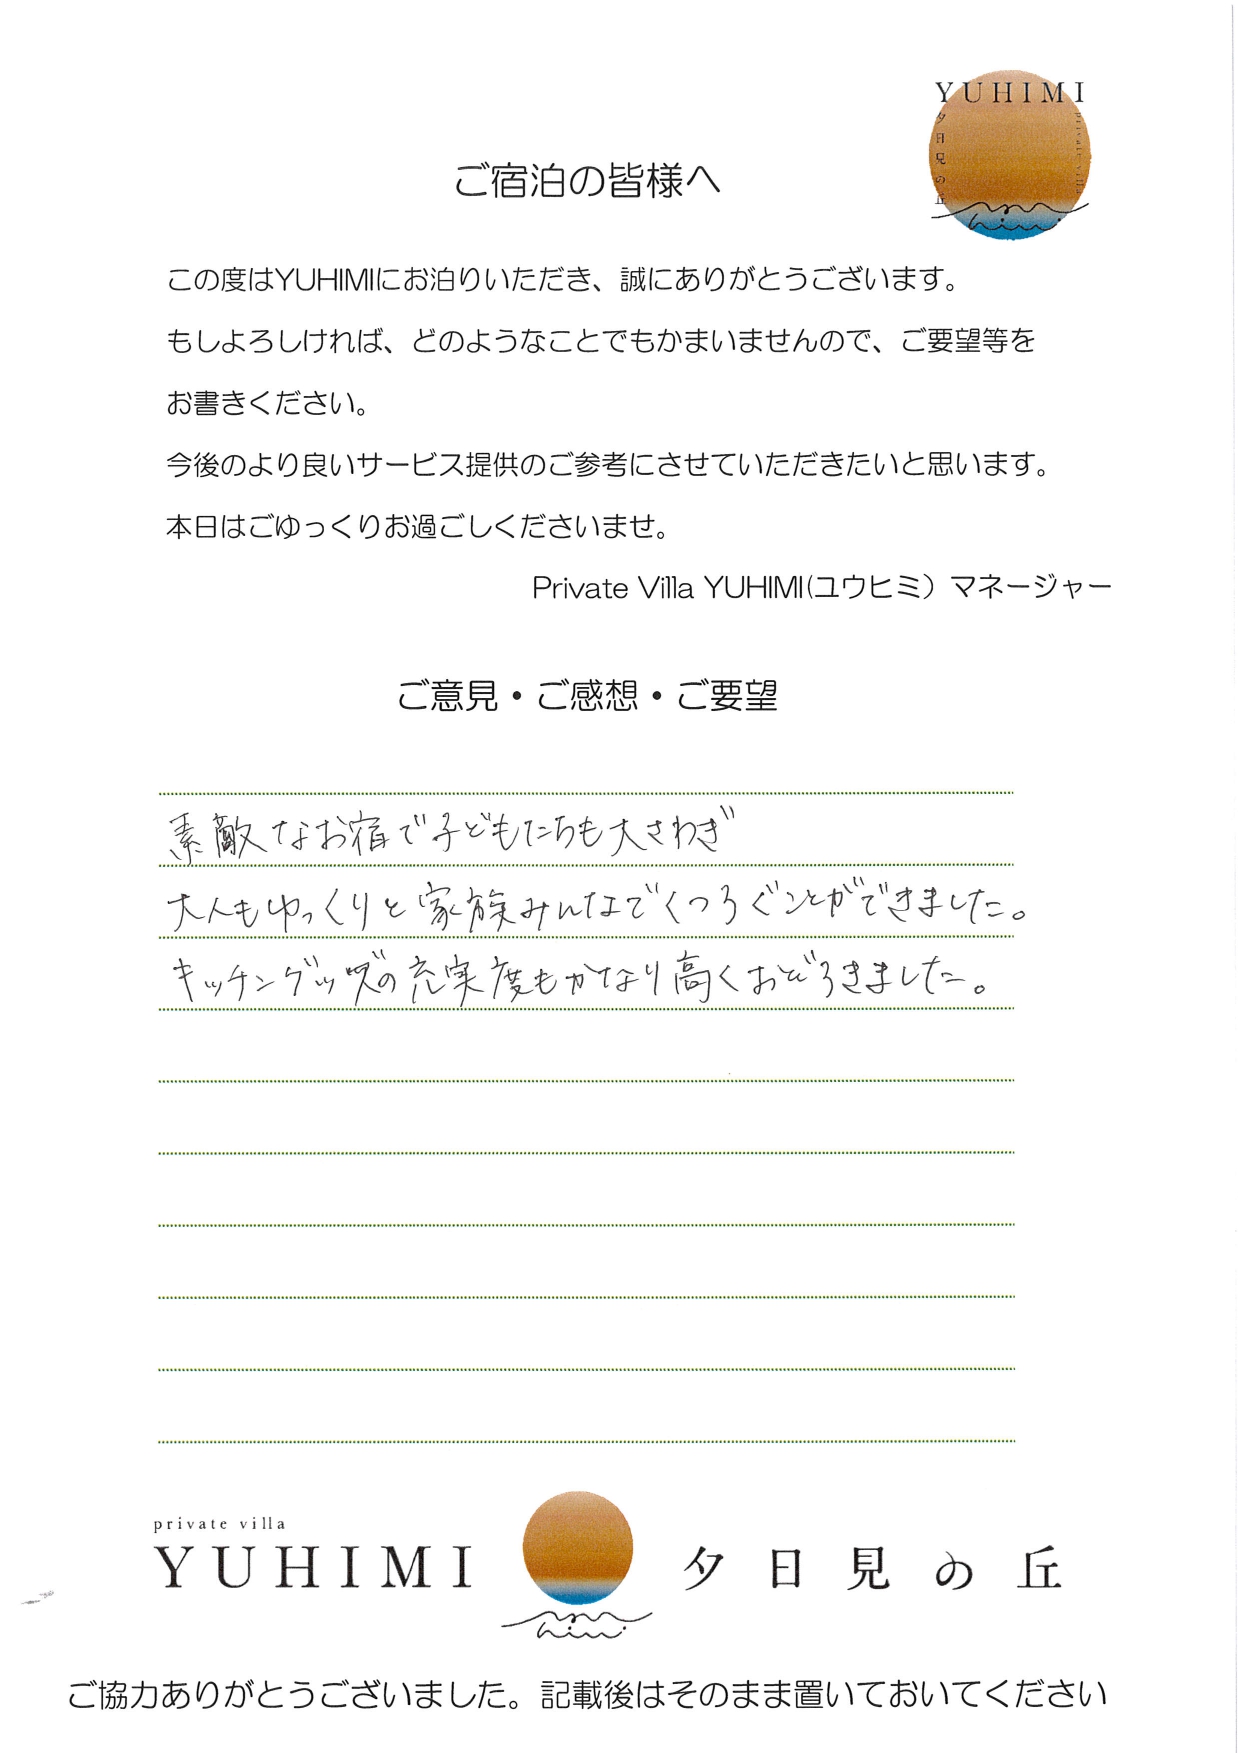 YUHIMI
夕日見の丘
private villa
ご宿泊の皆様へ
この度はYUHIMIにお泊りいただき、誠にありがとうございます。
もしよろしければ、どのようなことでもかまいませんので、ご要望等を
お書きください。
今後のより良いサービス提供のご参考にさせていただきたいと思います。
本日はごゆっくりお過ごしくださいませ。
Private Villa YUHIMI(ユウヒミ）マネージャー
ご意見・ご感想・ご要望
素敵なお宿で子どもたちも大さわぎ
大人もゆっくりと家族みんなでくつろぐことができました。
キッチングッズの充実度もかなり高くおどろきました。
private villa
YUHIMI 夕日見の丘
ご協力ありがとうございました。記載後はそのまま置いておいてください